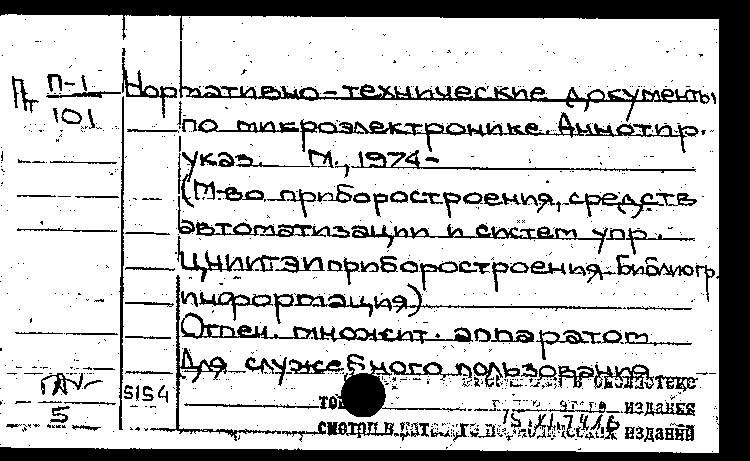 Пт П-1 Нормативно-технические документы
101 по микроэлектронике. Аннотир.
указ. М., 1974-
(М-во приборостроения, средств
автоматизации и систем упр.
ЦНИИТЭИприборостроения. Библиогр.
информация)
Отпеч. множит. аппаратом
Для служебного пользования
в библиотеке
5154 издания
5 15.XI.74
смотри в каталоге периодических изданий